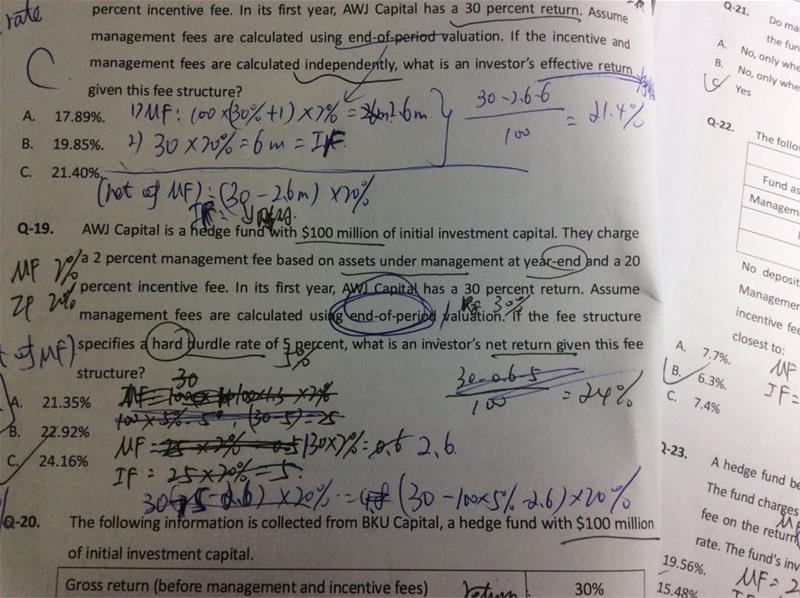 rate
percent incentive fee. In its first year, AWJ Capital has a 30 percent return. Assume
management fees are calculated using end-of-period valuation. If the incentive and
management fees are calculated independently, what is an investor's effective return
given this fee structure?
C
A. 17.89%.
1) MF: 100 × (30%+1) × 2% = 2.6m
B. 19.85%.
2) 30 × 20% = 6m = IF
30-2.6-6
100
= 21.4%
C. 21.40%
(net of MF): (30 - 2.6m) × 20%
Q-19. AWJ Capital is a hedge fund with $100 million of initial investment capital. They charge
a 2 percent management fee based on assets under management at year-end and a 20
percent incentive fee. In its first year, AWJ Capital has a 30 percent return. Assume
management fees are calculated using end-of-period valuation. If the fee structure
specifies a hard hurdle rate of 5 percent, what is an investor's net return given this fee
structure?
MF 2%
IF 20%
30%
5%
t of MF)
30
A. 21.35%
100 × 5% = 5, (30-5) = 25
B. 22.92%
MF = 25 × 2% = 0.5 130 × 2% = 2.6
C. 24.16%
IF = 25 × 20% = 5
30-0.6-5
100
= 24%
(30 - 100×5% - 2.6) × 20%
Q-20. The following information is collected from BKU Capital, a hedge fund with $100 million
of initial investment capital.
Gross return (before management and incentive fees) return 30%
Q-21.
Do ma
the fun
A. No, only whe
B. No, only whe
C Yes
Q-22.
The follow
Fund as
Managem
No deposit
Managemen
incentive fee
closest to:
A. 7.7%.
B. 6.3%.
C. 7.4%
MF =
IF =
Q-23.
A hedge fund be
The fund charges
fee on the return
rate. The fund's inv
19.56%.
15.48%
MF = 2